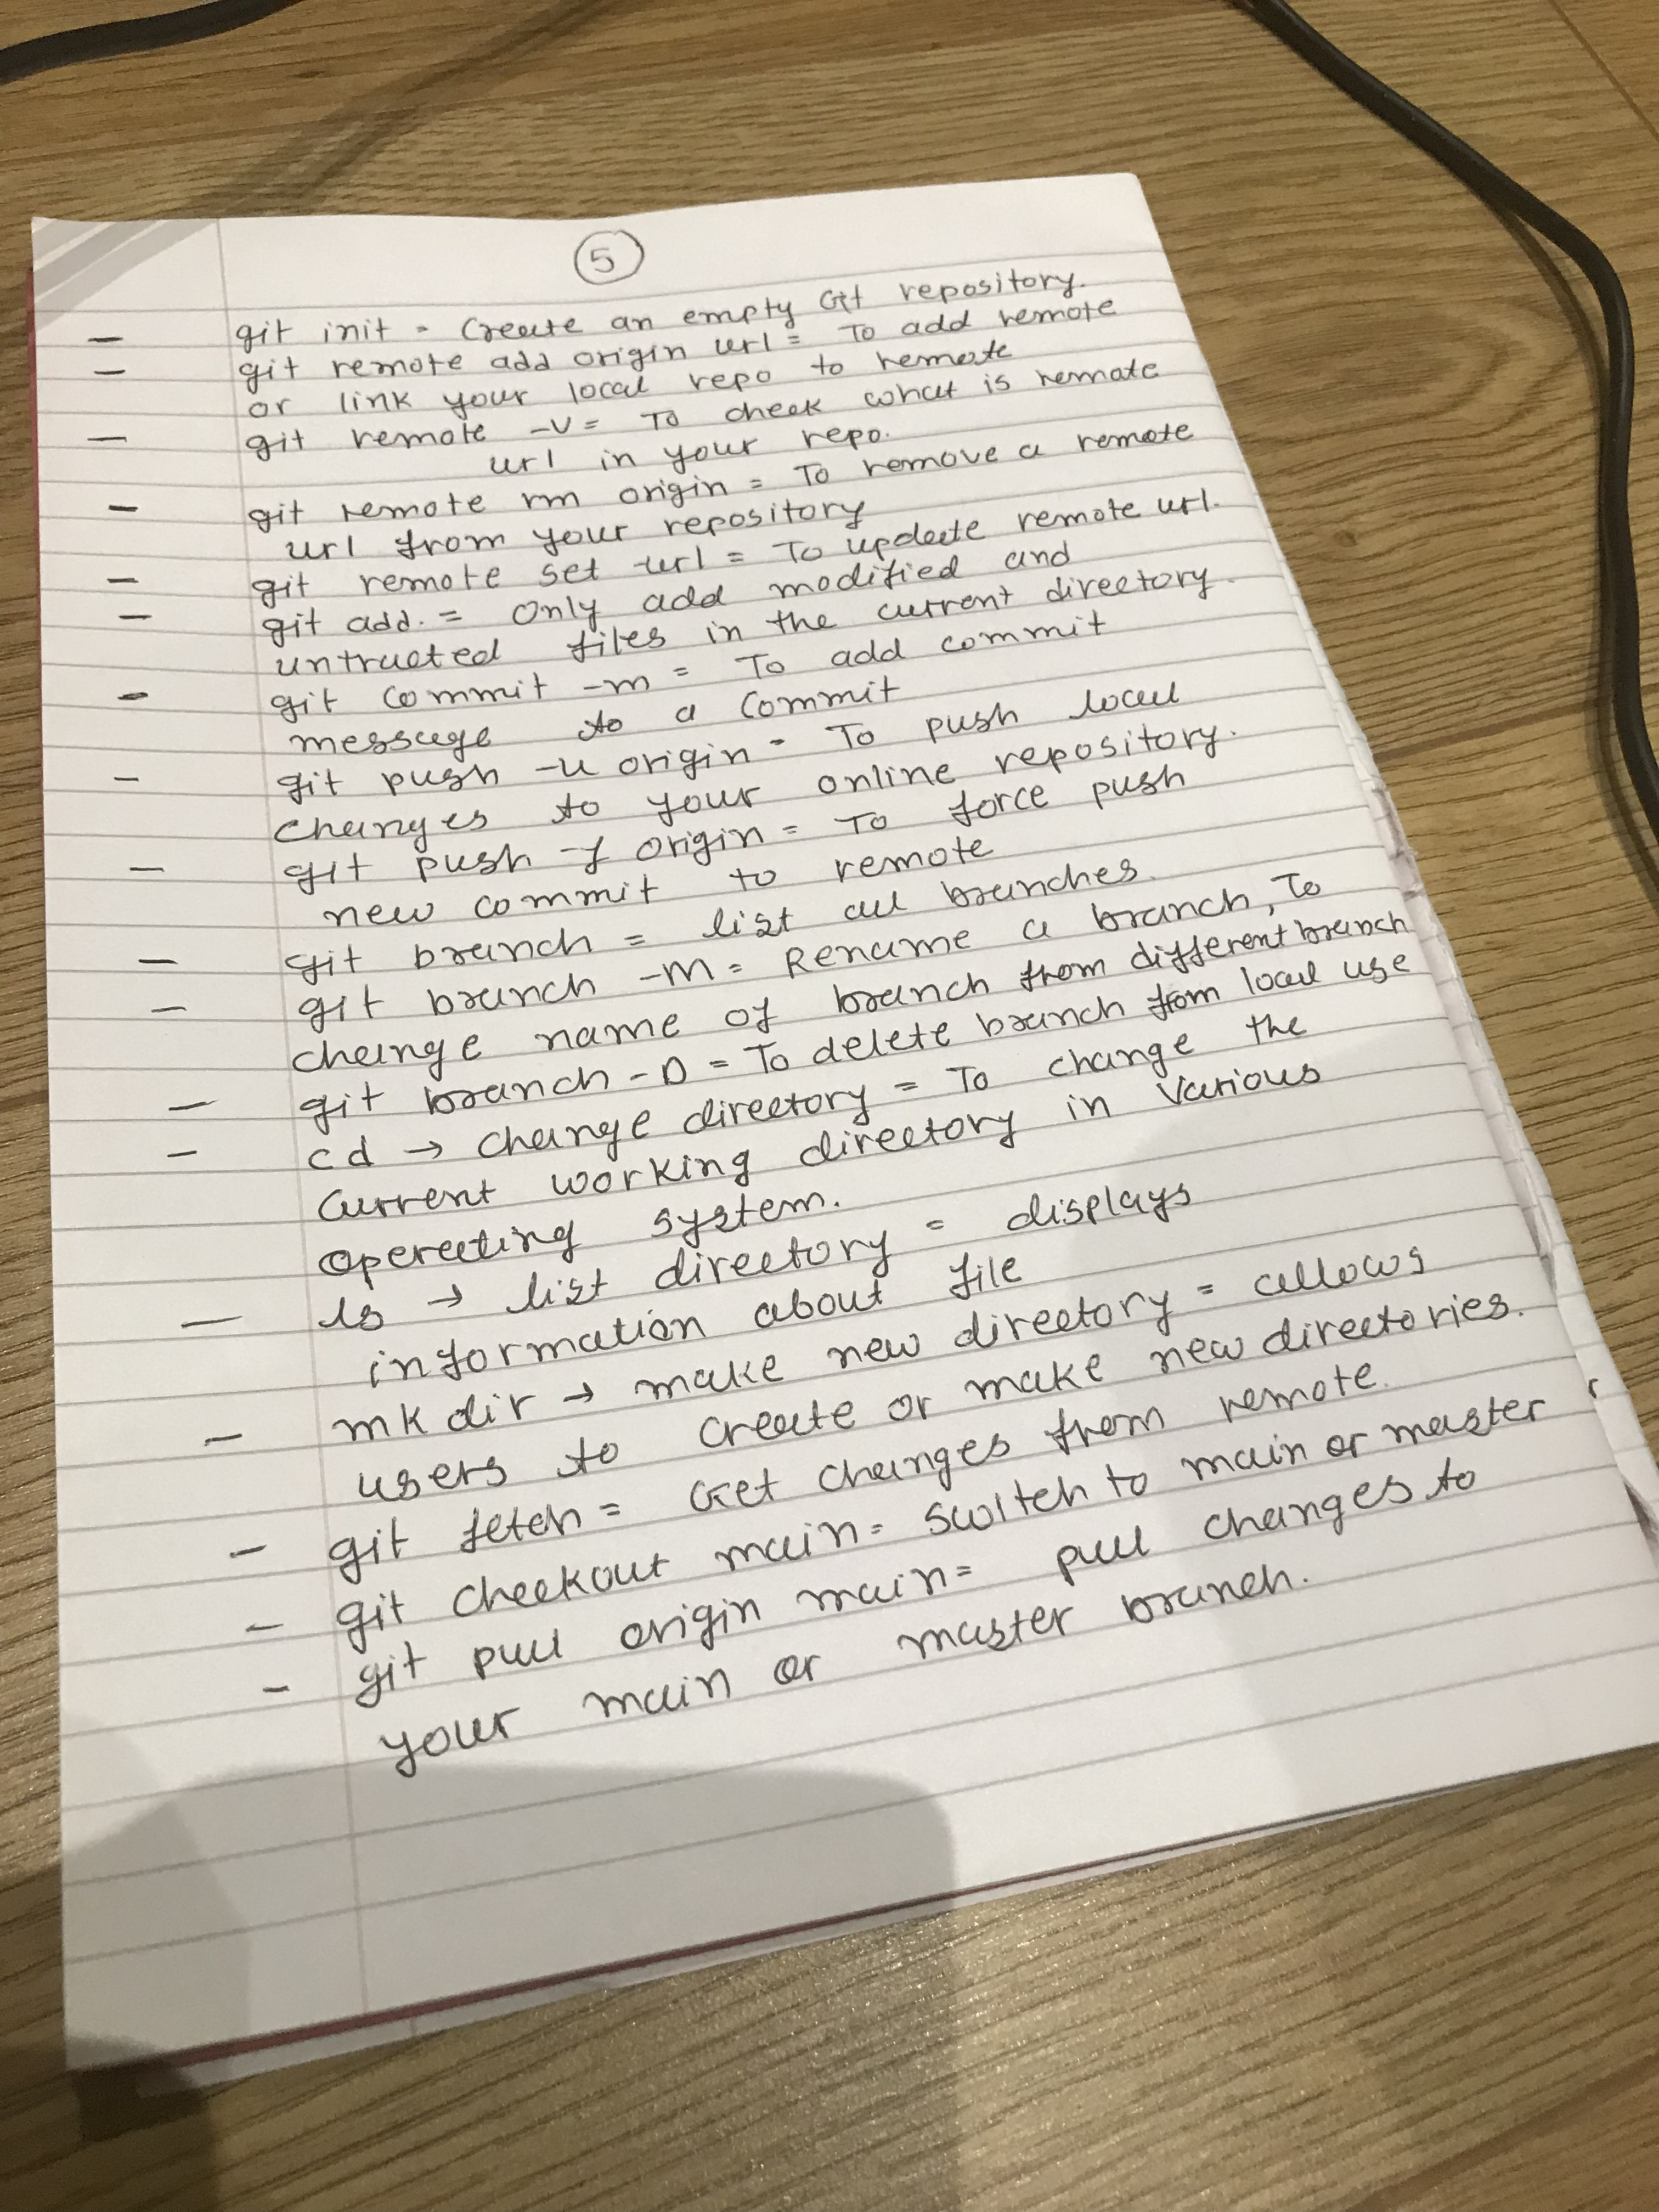 5
- git init = Create an empty Git repository.
- git remote add origin url = To add remote
or link your local repo to remote
- git remote -v = To check what is remote
url in your repo.
- git remote rm origin = To remove a remote
url from your repository
- git remote set -url = To update remote url.
- git add. = Only add modified and
untracted files in the current directory.
- git commit -m = To add commit
message to a commit
- git push -u origin = To push local
changes to your online repository.
- git push -f origin = To force push
new commit to remote
- git branch = list all branches.
- git branch -M = Rename a branch, To
change name of branch from different branch
- git branch -D = To delete branch from local use
- cd → change directory = To change the
current working directory in various
operating system.
- ls → list directory = displays
information about file
- mkdir → make new directory = allows
users to create or make new directories.
- git fetch = Get changes from remote.
- git checkout main = switch to main or master
- git pull origin main = pull changes to
your main or master branch.